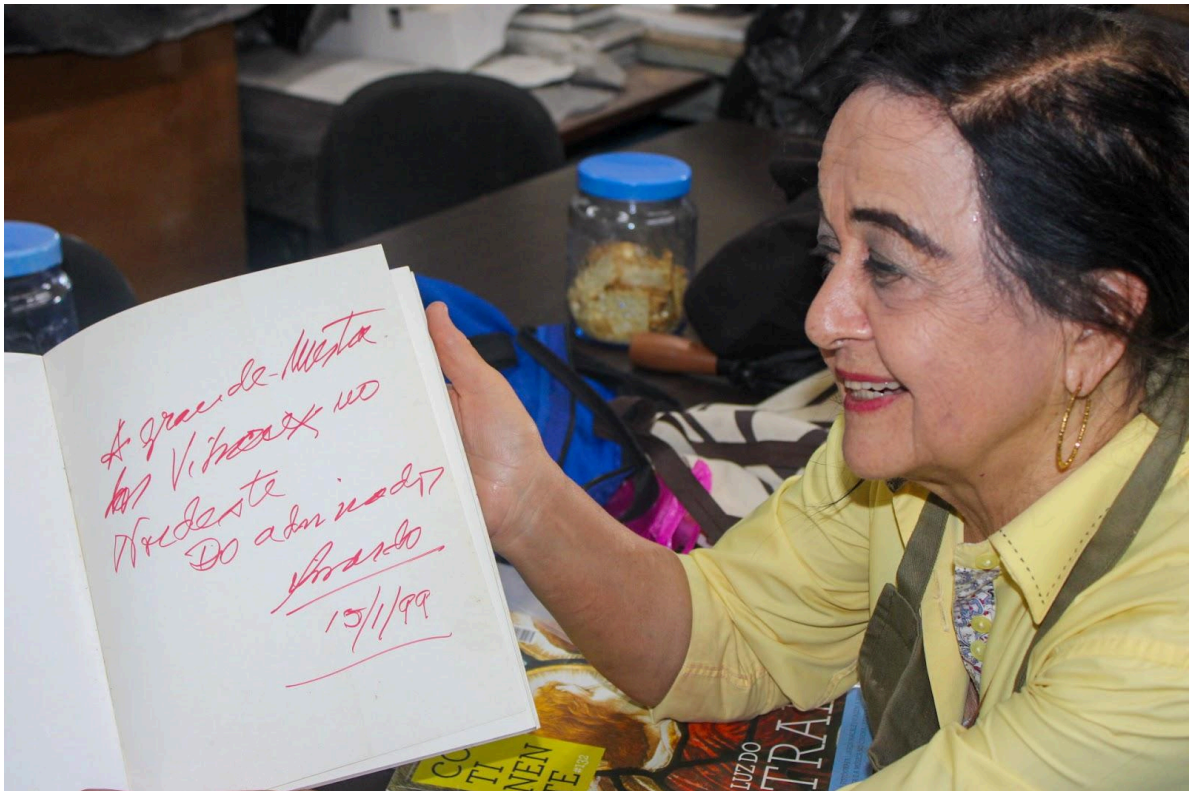 A grande Mestra
dos Vitraes no
Nordeste
Do admirador
15/1/99
CO
TI
NEN
TE #132
LUZ DO
TRA